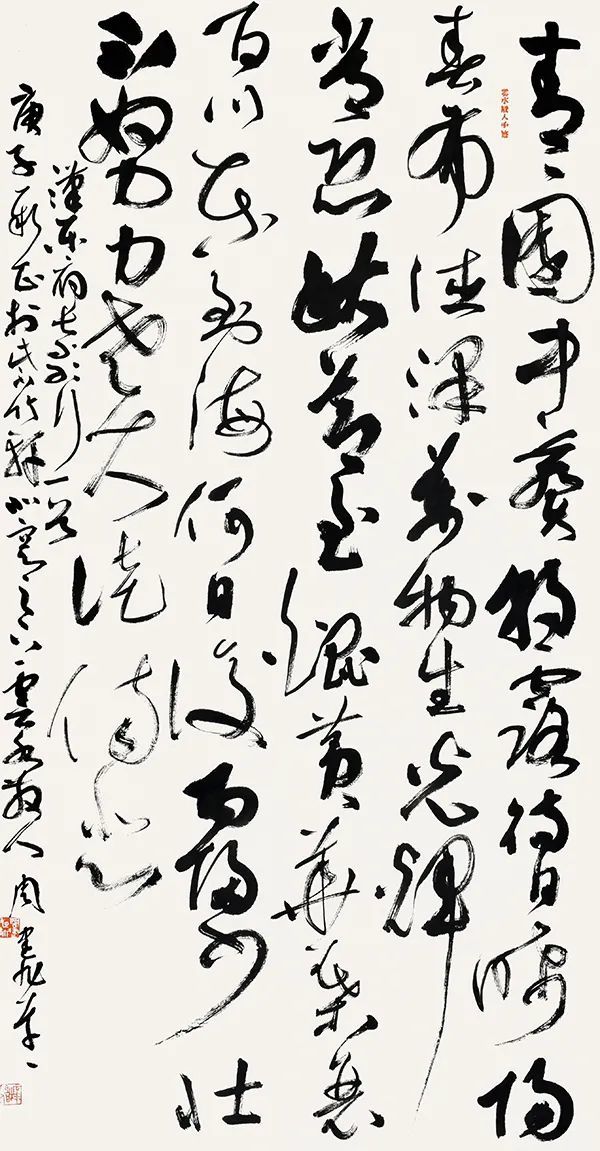 青〻園中葵朝露待日晞陽
春布德澤萬物生光輝
常恐秋節至焜黄華葉衰
百川東到海何日復西歸少壯
不努力老大徒傷悲
漢樂府長歌行一首
庚子雲水散人周